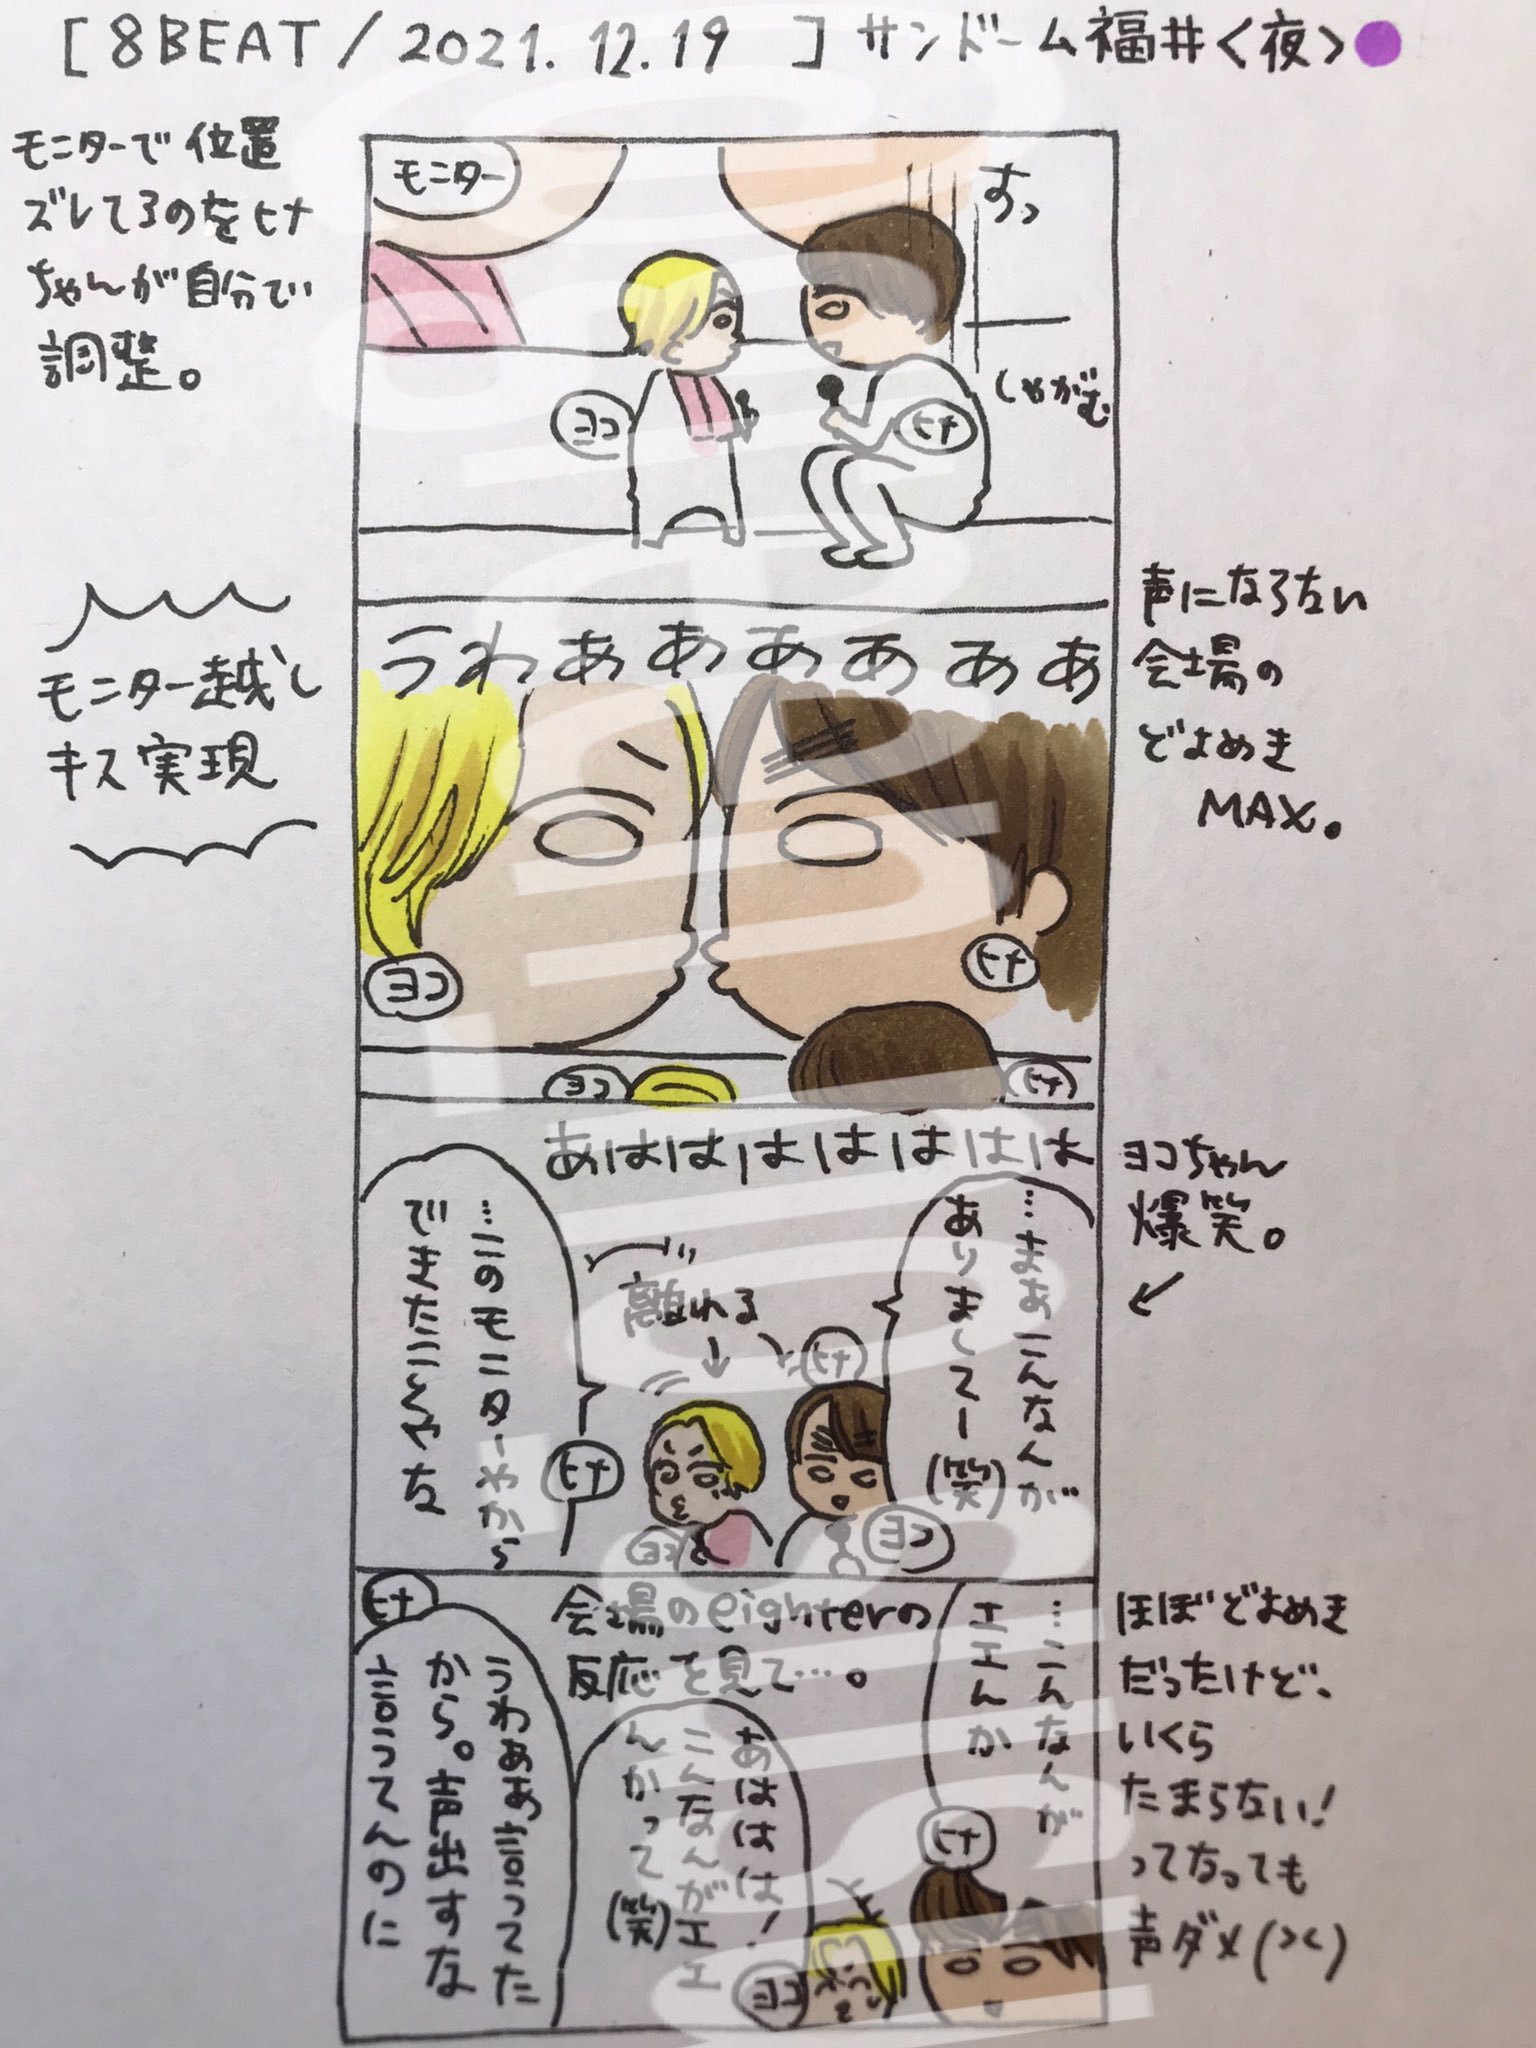 [8BEAT/2021.12.19 ]サンドーム福井<夜>
モニターで位置
ズレてるのをヒナ
ちゃんが自分で
調整。
モニター
すっ
しゃがむ
ヨコ
ヒナ
声にならない
会場の
どよめき
MAX。
うわぁぁぁぁぁぁ
モニター越し
キス実現
ヨコ
ヒナ
ヨコ
ヒナ
ヨコちゃん
爆笑。
あははははははは
…まぁこんなんが
ありましてー
(笑)
ヨコ
離れる
ヒナ
ヨコ
…このモニターやから
できたことやな
ヒナ
ほぼどよめき
だったけど、
いくら
たまらない!
ってなっても
声ダメ(><)
…こんなんが
エエんか
ヒナ
会場のeighterの
反応を見て…。
あははは!
こんなんがエエ
んかって
(笑)
ヨコ
ヒナ
うわぁあっ言ってた
から。声出すな
言ってんのに